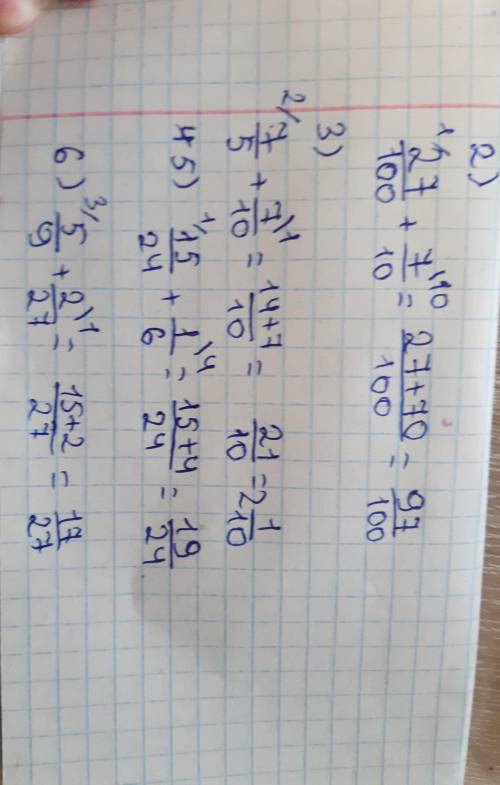 2)
1\ 27/100 + 7/10 \10 = 27+70/100 = 97/100
3)
2/ 7/5 + 7/10 \1 = 14+7/10 = 21/10 = 2 1/10
5) 1\ 15/24 + 1/6 \4 = 15+4/24 = 19/24
6) 3/ 5/9 + 2/27 \1 = 15+2/27 = 17/27